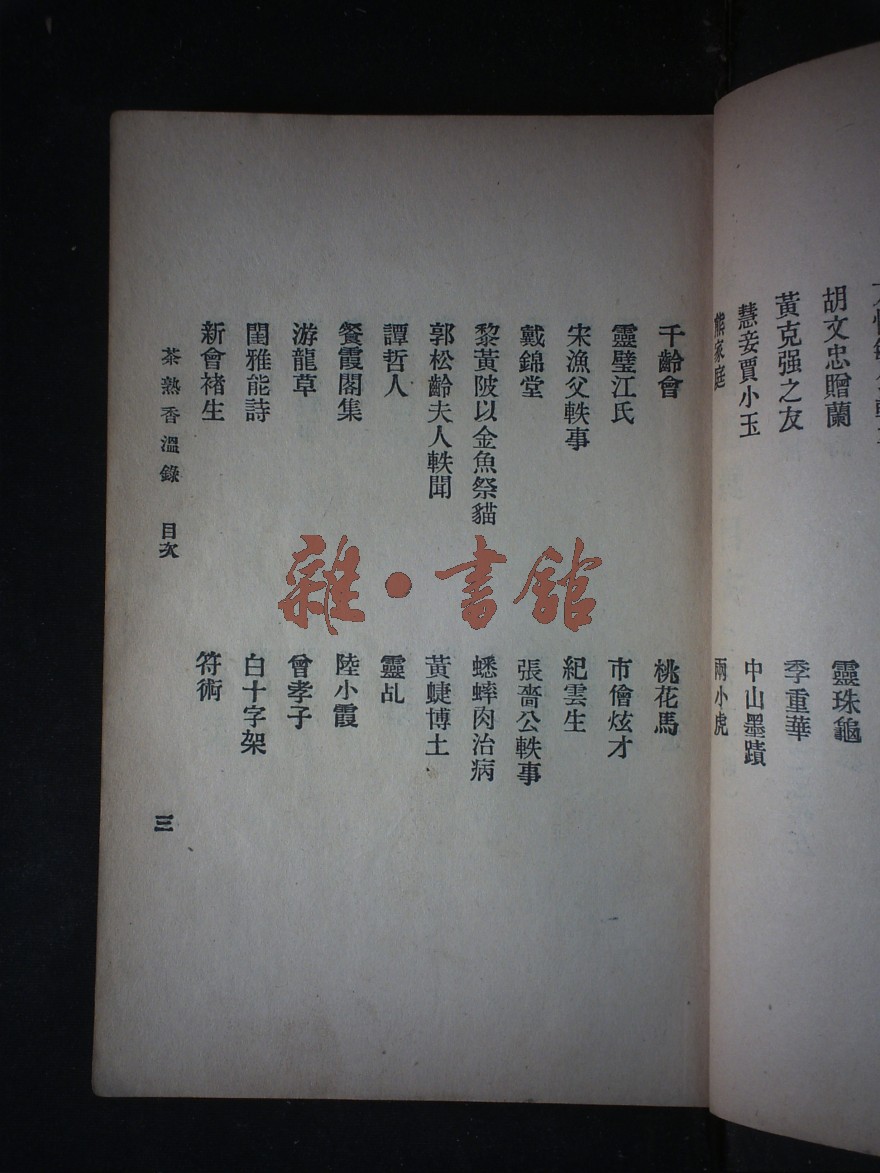 胡文忠贈蘭
黃克强之友
慧妾賈小玉
家庭
靈珠龜
季重華
中山墨蹟
兩小虎
千齡會
靈璧江氏
宋漁父軼事
戴錦堂
黎黃陂以金魚祭貓
郭松齡夫人軼聞
譚哲人
餐霞閣集
游龍草
閨雅能詩
新會褚生
桃花馬
市儈炫才
紀雲生
張嗇公軼事
蟋蟀肉治病
黃蜨博士
靈乩
陸小霞
曾孝子
白十字架
符術
茶熟香溫錄 目次
三
雜·書館